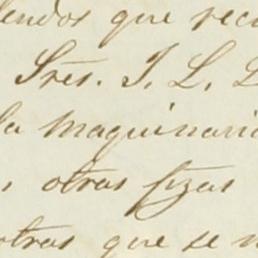 lendos que reci
Sres. J. L. L
la maquinaria
, otras fizas
otras que se n